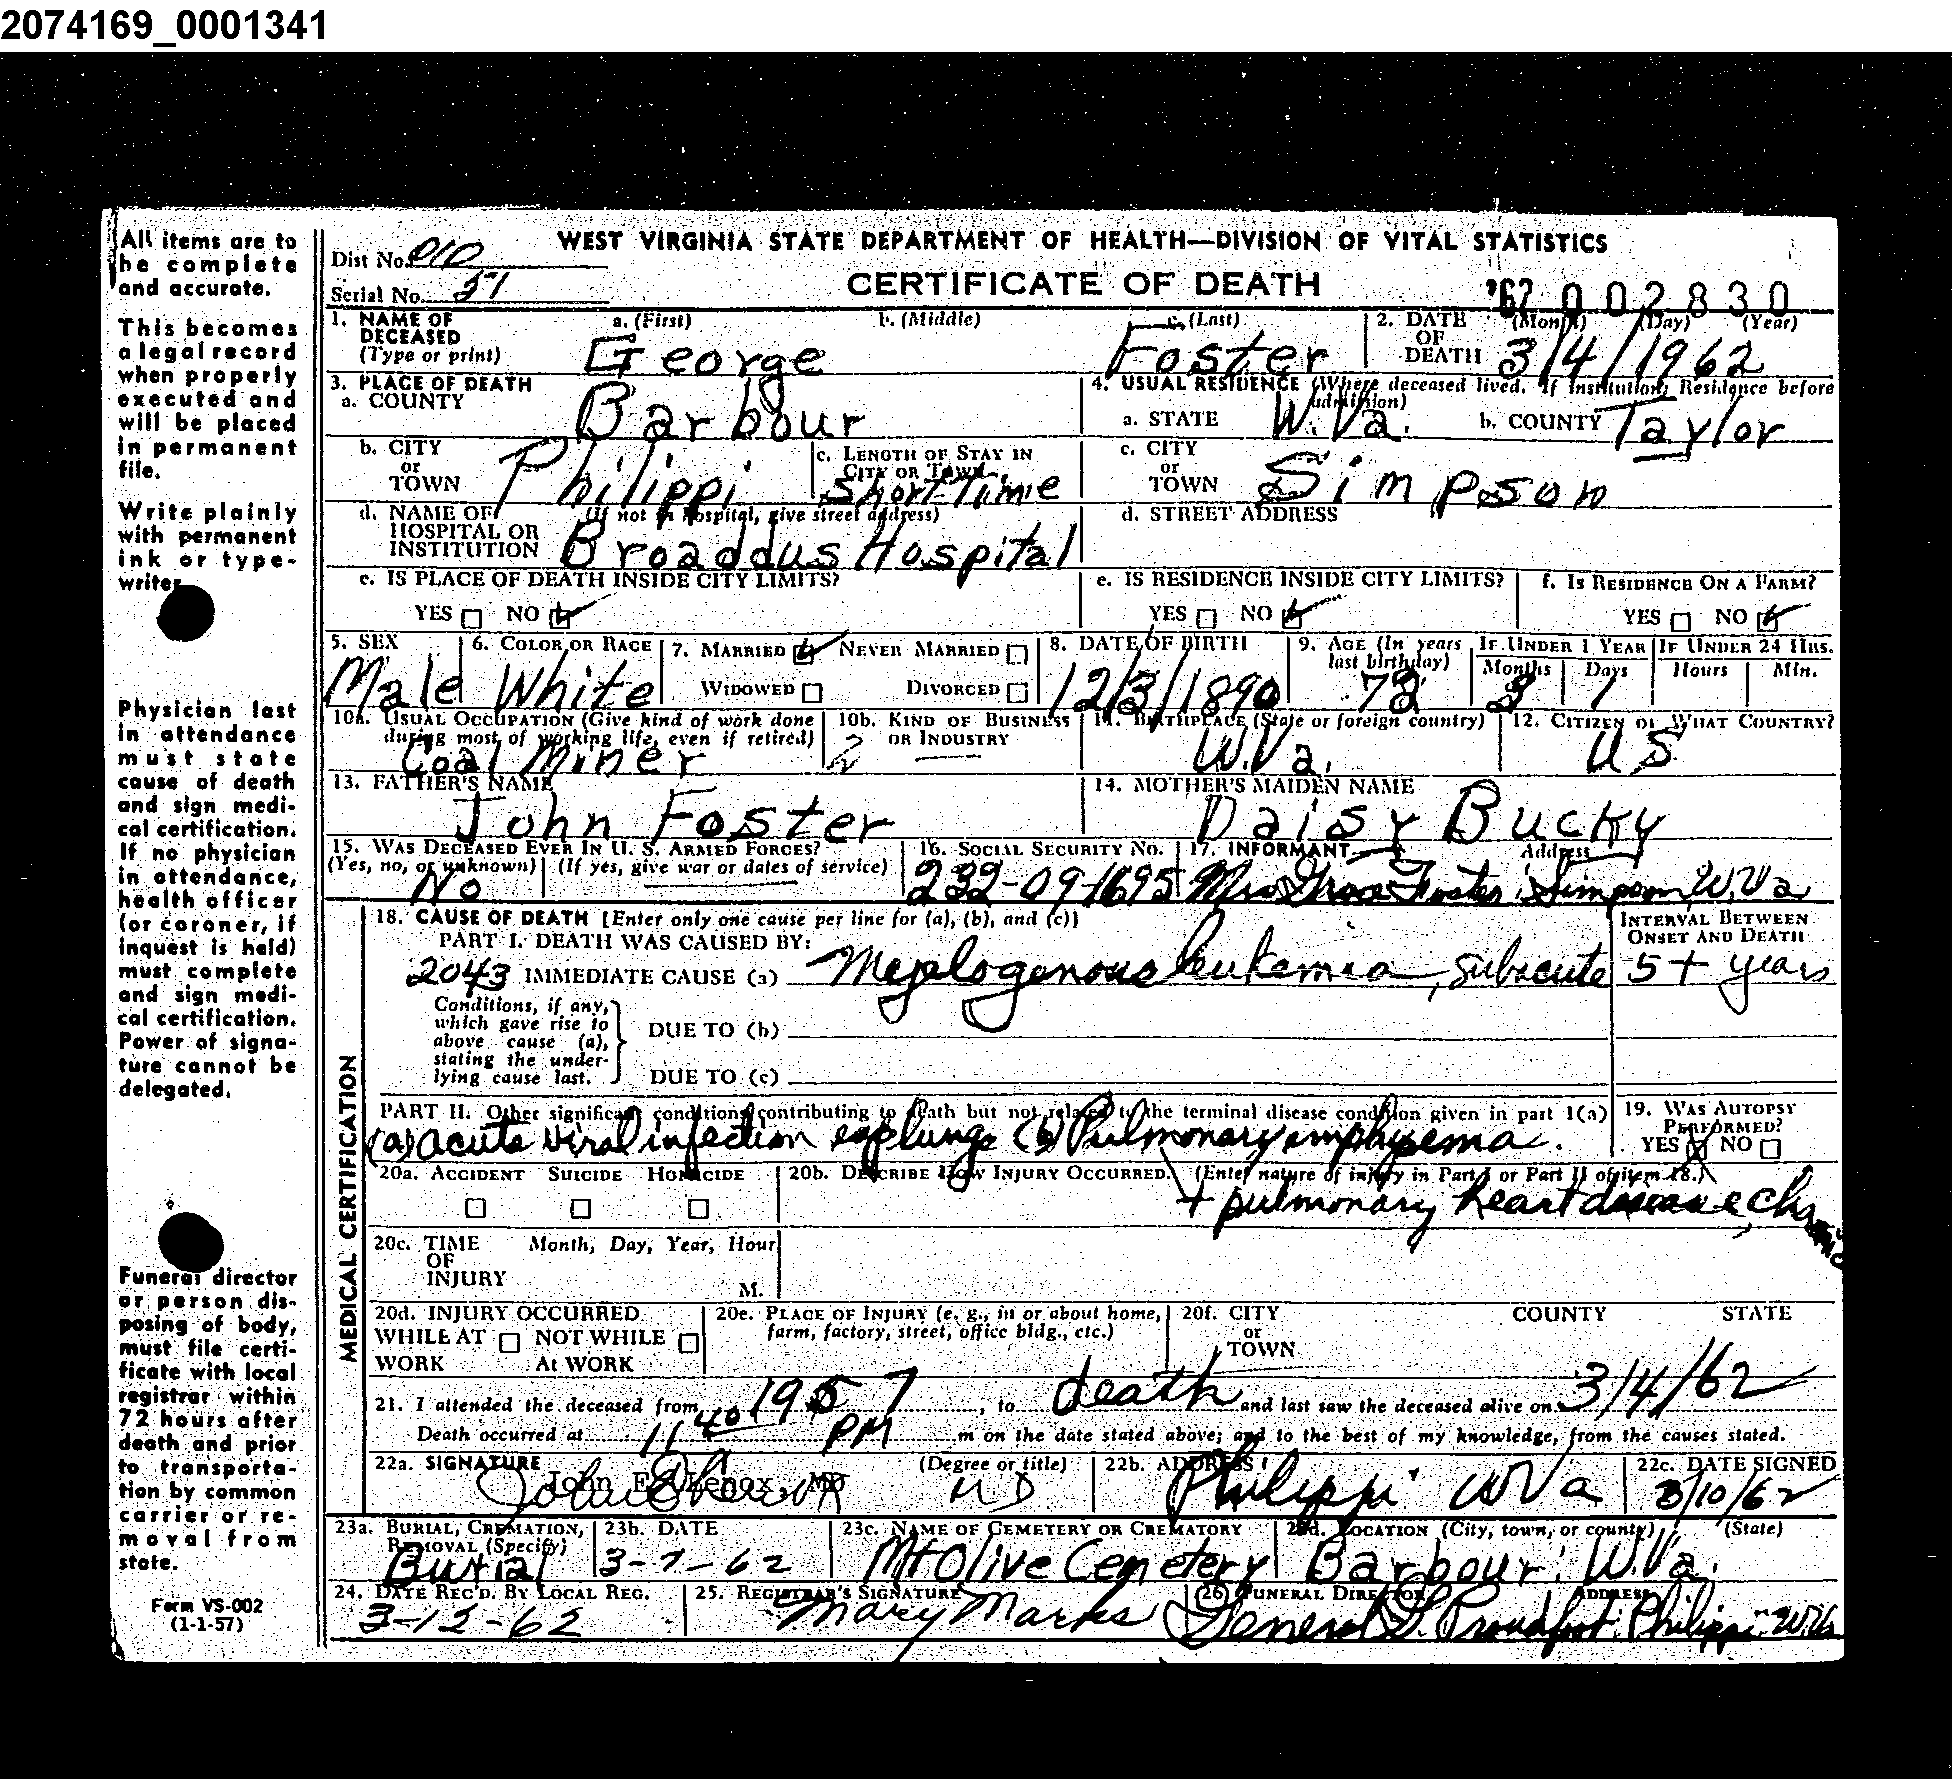 2074169_0001341
All items are to
be complete
and accurate.
This becomes
a legal record
when properly
executed and
will be placed
in permanent
file.
Write plainly
with permanent
ink or type-
writer
Physician last
in attendance
must state
cause of death
and sign medi-
cal certification.
If no physician
in attendance,
health officer
(or coroner, if
inquest is held)
must complete
and sign medi-
cal certification.
Power of signa-
ture cannot be
delegated.
Funeral director
or person dis-
posing of body,
must file certi-
ficate with local
registrar within
72 hours after
death and prior
to transporta-
tion by common
carrier or re-
moval from
state.
Form VS-002
(1-1-57)
WEST VIRGINIA STATE DEPARTMENT OF HEALTH—DIVISION OF VITAL STATISTICS
Dist No. 010
CERTIFICATE OF DEATH
Serial No. 51
'62 002830
1. NAME OF DECEASED (Type or print) a. (First) b. (Middle) c. (Last) 2. DATE OF DEATH (Month) (Day) (Year)
George Foster 3/4/1962
3. PLACE OF DEATH 4. USUAL RESIDENCE (Where deceased lived. If institution, Residence before admission)
a. COUNTY Barbour a. STATE W.Va. b. COUNTY Taylor
b. CITY or TOWN Philippi c. LENGTH OF STAY IN CITY OR TOWN Short Time c. CITY or TOWN Simpson
d. NAME OF HOSPITAL OR INSTITUTION (If not in hospital, give street address) Broaddus Hospital d. STREET ADDRESS
e. IS PLACE OF DEATH INSIDE CITY LIMITS? e. IS RESIDENCE INSIDE CITY LIMITS? f. IS RESIDENCE ON A FARM?
YES NO YES NO YES NO
5. SEX 6. COLOR OR RACE 7. MARRIED NEVER MARRIED 8. DATE OF BIRTH 9. AGE (In years last birthday) IF UNDER 1 YEAR IF UNDER 24 HRS.
WIDOWED DIVORCED Months Days Hours Min.
Male White 12/3/1890 72 3 1
10a. USUAL OCCUPATION (Give kind of work done during most of working life, even if retired) 10b. KIND OF BUSINESS OR INDUSTRY 11. BIRTHPLACE (State or foreign country) 12. CITIZEN OF WHAT COUNTRY?
Coal Miner 2 W.Va. U.S.
13. FATHER'S NAME 14. MOTHER'S MAIDEN NAME
John Foster Daisy Bucky
15. WAS DECEASED EVER IN U. S. ARMED FORCES? 16. SOCIAL SECURITY NO. 17. INFORMANT Address
(Yes, no, or unknown) (If yes, give war or dates of service)
No 232-09-1695 Mrs Foster Simpson, W.Va
MEDICAL CERTIFICATION
18. CAUSE OF DEATH [Enter only one cause per line for (a), (b), and (c)] INTERVAL BETWEEN ONSET AND DEATH
PART I. DEATH WAS CAUSED BY:
2043 IMMEDIATE CAUSE (a) Myelogenous leukemia, subacute 5+ years
Conditions, if any, which gave rise to above cause (a), stating the under- lying cause last.
DUE TO (b)
DUE TO (c)
PART II. Other significant conditions contributing to death but not related to the terminal disease condition given in part I(a) 19. WAS AUTOPSY PERFORMED?
(a) acute viral infection esp lungs (b) Pulmonary emphysema. YES NO
20a. ACCIDENT SUICIDE HOMICIDE 20b. DESCRIBE HOW INJURY OCCURRED. (Enter nature of injury in Part I or Part II of item 18.)
+ pulmonary heart disease, chronic
20c. TIME OF INJURY Month, Day, Year, Hour
M.
20d. INJURY OCCURRED 20e. PLACE OF INJURY (e. g., in or about home, farm, factory, street, office bldg., etc.) 20f. CITY or TOWN COUNTY STATE
WHILE AT WORK NOT WHILE At WORK
21. I attended the deceased from 1957, to death and last saw the deceased alive on 3/4/62
Death occurred at 11 40 PM m on the date stated above; and to the best of my knowledge, from the causes stated.
22a. SIGNATURE (Degree or title) 22b. ADDRESS 22c. DATE SIGNED
John E. Lenox, MD MD Philippi WVa 3/10/62
23a. BURIAL, CREMATION, REMOVAL (Specify) 23b. DATE 23c. NAME OF CEMETERY OR CREMATORY 23d. LOCATION (City, town, or county) (State)
Burial 3-7-62 Mt Olive Cemetery Barbour, W.Va.
24. DATE REC'D. BY LOCAL REG. 25. REGISTRAR'S SIGNATURE 26. FUNERAL DIRECTOR ADDRESS
3-12-62 Mary Marks General G. Proudfoot Philippi W.Va